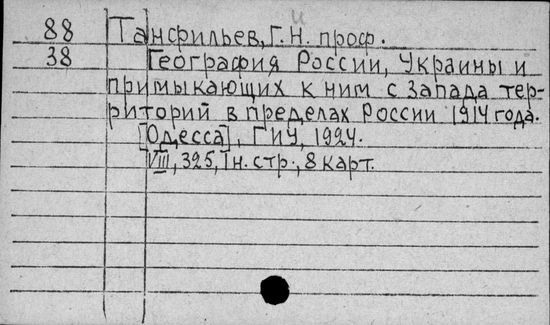 88 Танфильев, Г.И. проф.
38 География России, Украины и
примыкающих к ним с запада тер-
риторий в пределах России 1914 года.
[Одесса], ГИУ, 1924.
VIII, 325, I н. стр., 8 карт.